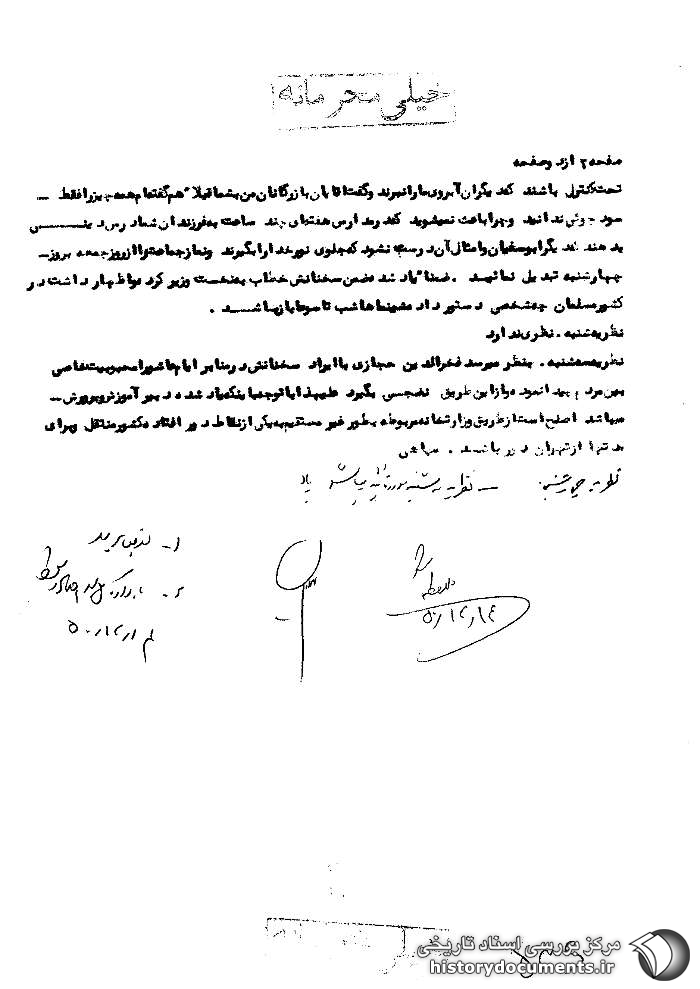 خیلی محرمانه
صفحه ۲ از دو صفحه
تحت کنترل باشند که دیگران آبروی ما را نبرند و گفت آقایان بازرگانان من بشما قبلا" هم گفته‌ام همه چیز را فقط
سود جوئی ندانید و چرا باعث نمیشوید که در مدارس هفته‌ای چند ساعت به فرزندان شما درس دینی
بدهند که دیگر ابوسفیان و امثال آن درست نشود که جلوی نور خدا را بگیرند و نماز جماعت را از روز جمعه بروز
چهارشنبه تبدیل نمائید . ضمنا" یاد شده ضمن سخنانش خطاب به نخست وزیر کرد و اظهار داشت در
کشور مسلمان چه شخصی دستور داده سینماها شب تاسوعا باز باشد .
نظریه شنبه . نظری ندارد
نظریه سه‌شنبه . بنظر میرسد فخرالدین حجازی با ایراد سخنانش در منابر ایام عاشورا محبوبیت خاصی
بین مردم پیدا نموده و از این طریق تصمیم بگیرد علیهذا با توجه باینکه یاد شده دبیر آموزش و پرورش
میباشد اصلح است از طریق وزارتخانه مربوطه بطور غیر مستقیم به یکی از نقاط دور افتاده کشور منتقل و برای
مدتها از تهران دور باشد .
نظریه چهارشنبه . نظریه سه‌شنبه مورد تائید میباشد
ملاحظه شد
۵۰/۱۲/۱۴
۱-
۲-
۵۰/۱۲/
مرکز بررسی اسناد تاریخی
historydocuments.ir